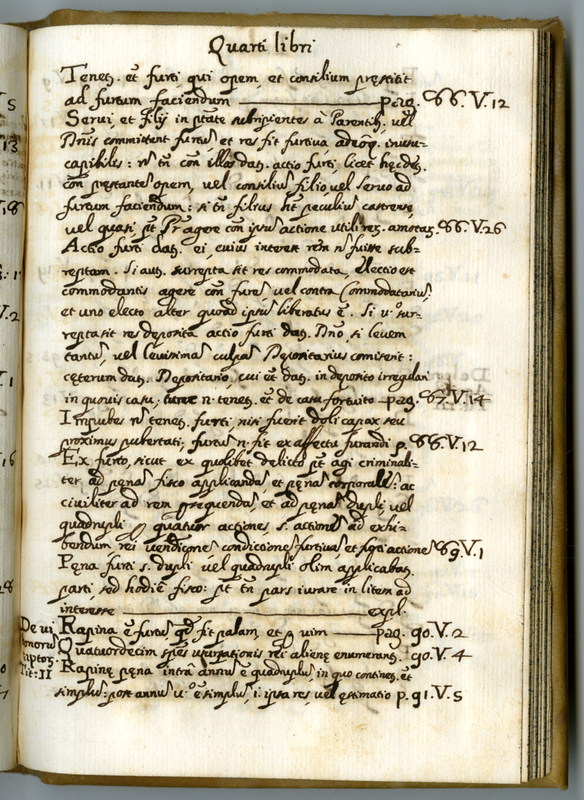 Quarti libri
Tenet. et furti, qui opem, et consilium prestitit
ad furtum faciendum — pag. 86. V. 12
Servi et filij in ptate subripientes à Parentib. vel
Dnis committunt furtū et res fit furtiva adeoq. inusu-
capibilis: n tn con illos dat. actio furti licet
con prestante opem, vel consiliū filio vel servo ad
furtum faciendū: si tn filius ht peculiū castrense,
vel quasi, pt Pr agere con ipsū actione utili rer. amotar. 86. V. 26
Actio furti dat. ei, cuius interest rem n fuisse sub-
reptam. Si aut. surrepta sit res commodata, electio est
commodantis agere con furē vel contra Commodatariū:
et uno electo alter quoad ipsū liberatus ē. Si v.o sur-
repta sit res deposita actio furti dat. Dno, si levem
tantū, vel levissimā culpā Depositarius comiserit:
ceterum dat. Depositario, cui et dat. in deposito irregulari
in quovis casu, n. tenet. et de casu fortuito — pag. 87. V. 14
Impubes n tenet. furti, nisi fuerit doli capax seu
proximus pubertati, furtū n. fit ex affectu furandi p. 88. V. 12
Ex furto, sicut ex quolibet delicto pt agi criminali-
ter ad penā fisco applicandā et penā corporalē: ac
civiliter ad rem prequendā et ad penā dupli vel
quadrupli p quatuor actiones s. actionē ad exhi-
bendum rei vendicone condictione furtivā et actione 89. V. 1
Pena furti s. dupli vel quadrupli olim applicabat.
parti, sed hodiē fisco: pt tn pars iurare in litem ad
interesse — expl.
De vi bonorū raptor. Tit: II
Rapina ē furtū qd fit palam, et p vim — pag. 90. V. 2
Quatuordecim spēs usurpationis rei aliene enumerant. 90. V. 4
Rapine pena intrā annū ē quadruplū, in quo continet. et
simplū: post annū v.o ē simplū, i. ipsa res, vel estimatio p. 91. V. 5